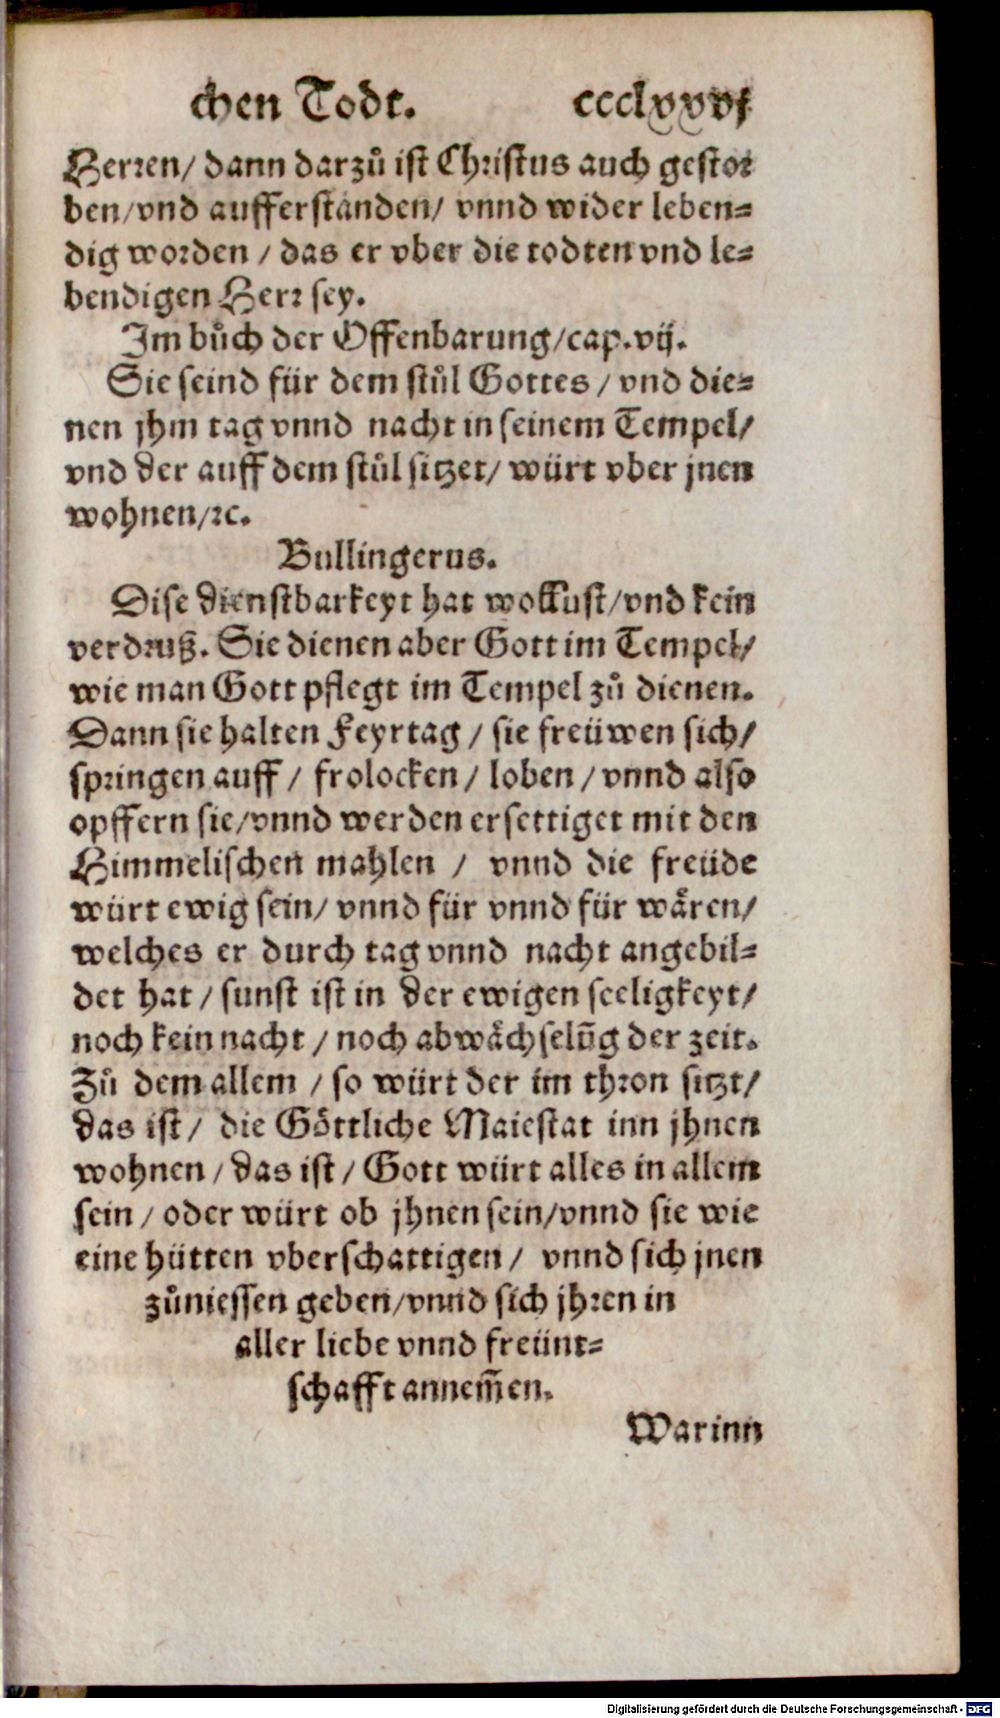 chen Todt. ccclxxvj
Herren/ dann darzů ist Christus auch gestor
ben/vnd aufferstanden/ vnnd wider leben-
dig worden / das er vber die todten vnd le-
bendigen Herr sey.
Im bůch der Offenbarung/cap.vij.
Sie seind für dem stůl Gottes / vnd die-
nen jhm tag vnnd nacht in seinem Tempel/
vnd der auff dem stůl sitzet/ würt vber jnen
wohnen/ꝛc.
Bullingerus.
Dise dienstbarkeyt hat wollust/vnd kein
verdruß. Sie dienen aber Gott im Tempel/
wie man Gott pflegt im Tempel zů dienen.
Dann sie halten Feyrtag / sie freüwen sich/
springen auff / frolocken / loben / vnnd also
opffern sie/vnnd werden ersettiget mit den
Himmelischen mahlen / vnnd die freüde
würt ewig sein/ vnnd für vnnd für wåren/
welches er durch tag vnnd nacht angebil-
det hat / sunst ist in der ewigen seeligkeyt/
noch kein nacht / noch abwåchselūg der zeit.
Zů dem allem / so würt der im thron sitzt/
das ist/ die Göttliche Maiestat inn jhnen
wohnen / das ist / Gott würt alles in allem
sein / oder würt ob jhnen sein/vnnd sie wie
eine hütten vberschattigen / vnnd sich jnen
zůniessen geben/vnnd sich jhren in
aller liebe vnnd freünt-
schafft annem̃en.
Warinn
Digitalisierung gefördert durch die Deutsche Forschungsgemeinschaft - DFG